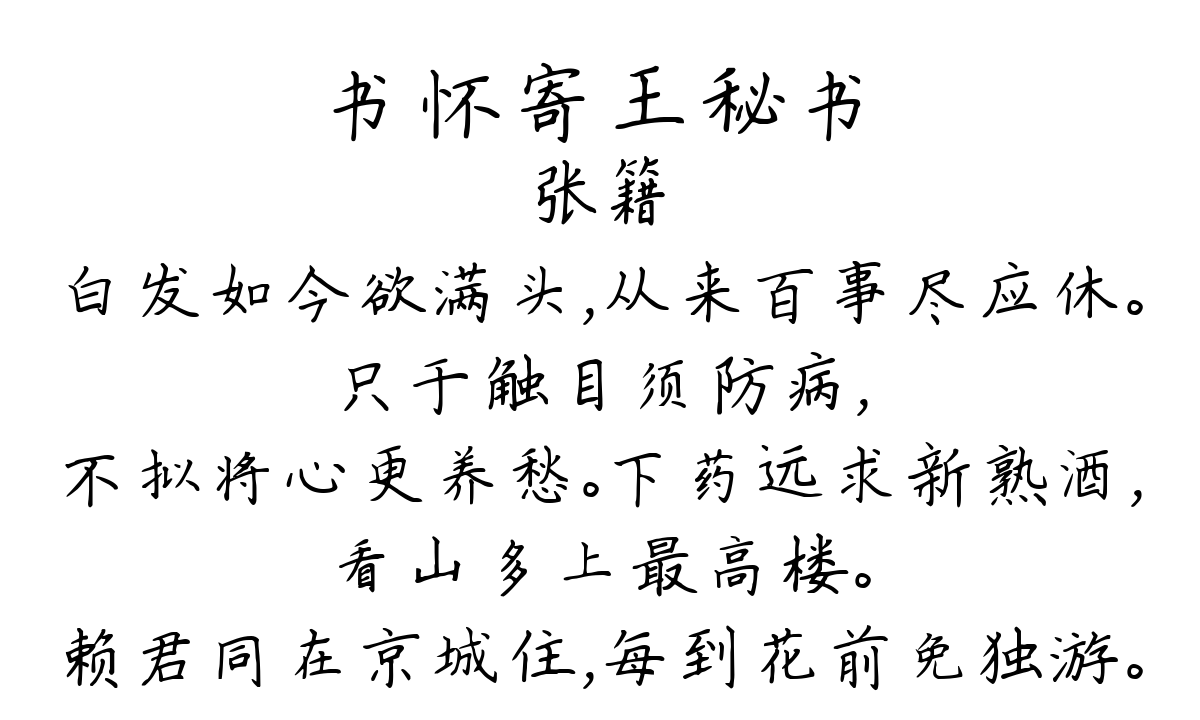 书怀寄王秘书
张籍
白发如今欲满头,从来百事尽应休。
只于触目须防病,
不拟将心更养愁。下药远求新熟酒,
看山多上最高楼。
赖君同在京城住,每到花前免独游。